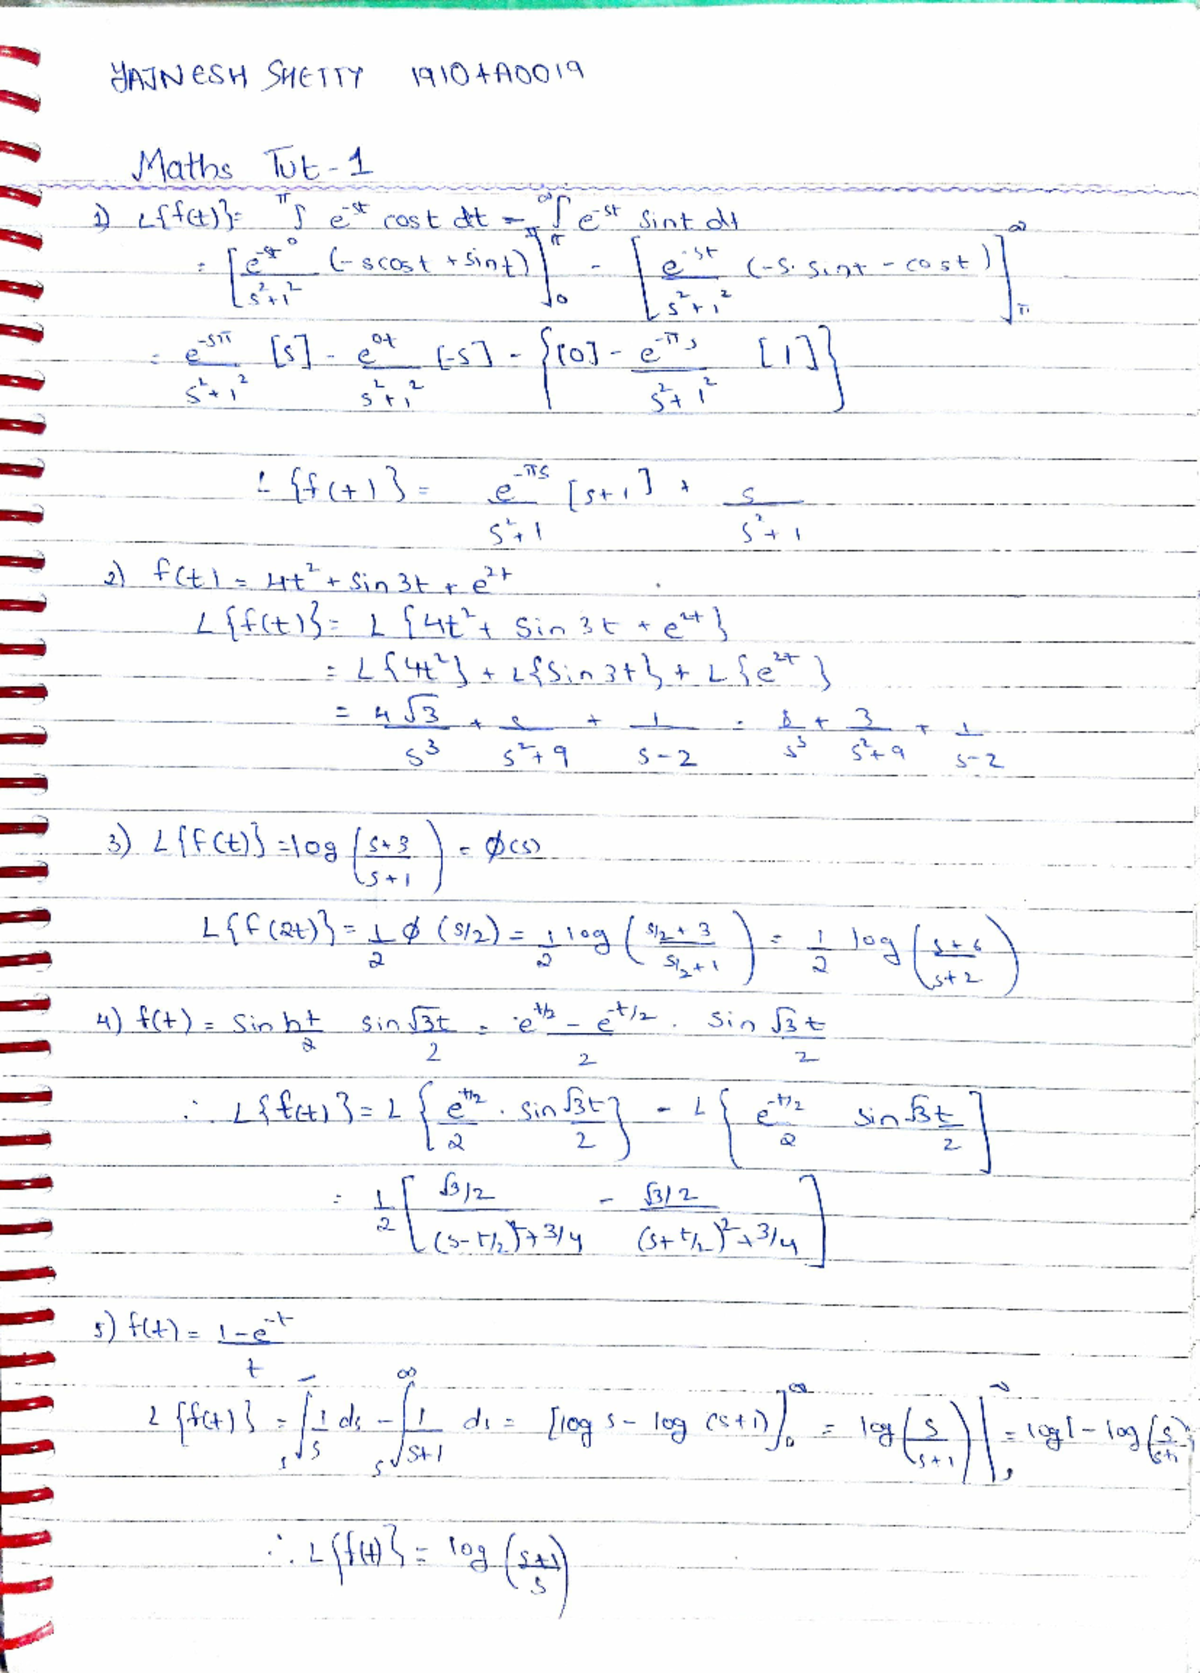 YAJNESH SHETTY 19107A0019
Maths Tut-1
1) L{f(t)} = π∫ e^-st cost dt - π∫^∞ e^-st sint dt
= [e^-st/(s²+1²) (-scost + sint)]_0^π - [e^-st/(s²+1²) (-s.sint - cost)]_π^∞
= e^-sπ/(s²+1²) [s] - e^0t/(s²+1²) [-s] - {[0] - e^-πs/(s²+1²) [1]}
L{f(t)} = e^-πs/(s²+1) [s+1] + s/(s²+1)
2) f(t) = 4t² + sin 3t + e^2t
L{f(t)} = L{4t² + sin 3t + e^2t}
= L{4t²} + L{sin 3t} + L{e^2t}
= 4√3/s³ + s/(s²+9) + 1/(s-2) = 8/s³ + 3/(s²+9) + 1/(s-2)
3) L{f(t)} = log((s+3)/(s+1)) = φ(s)
L{f(2t)} = 1/2 φ(s/2) = 1/2 log((s/2+3)/(s/2+1)) = 1/2 log((s+6)/(s+2))
4) f(t) = Sin ht/2 sin √3t/2 = (e^t/2 - e^-t/2)/2 . sin √3t/2
∴ L{f(t)} = L{e^t/2/2 . sin √3t/2} - L{e^-t/2/2 sin √3t/2]
= 1/2 [(√3/2)/((s-t/2)²+3/4) - (√3/2)/((s+t/2)²+3/4)]
5) f(t) = (1-e^-t)/t
L{f(t)} = s∫ 1/s ds - s∫^∞ 1/(s+1) ds = [log s - log (s+1)]_0^∞ = log(s/(s+1))|_s^∞ = log1 - log(s/(s+1)
∴ L{f(t)} = log((s+1)/s)